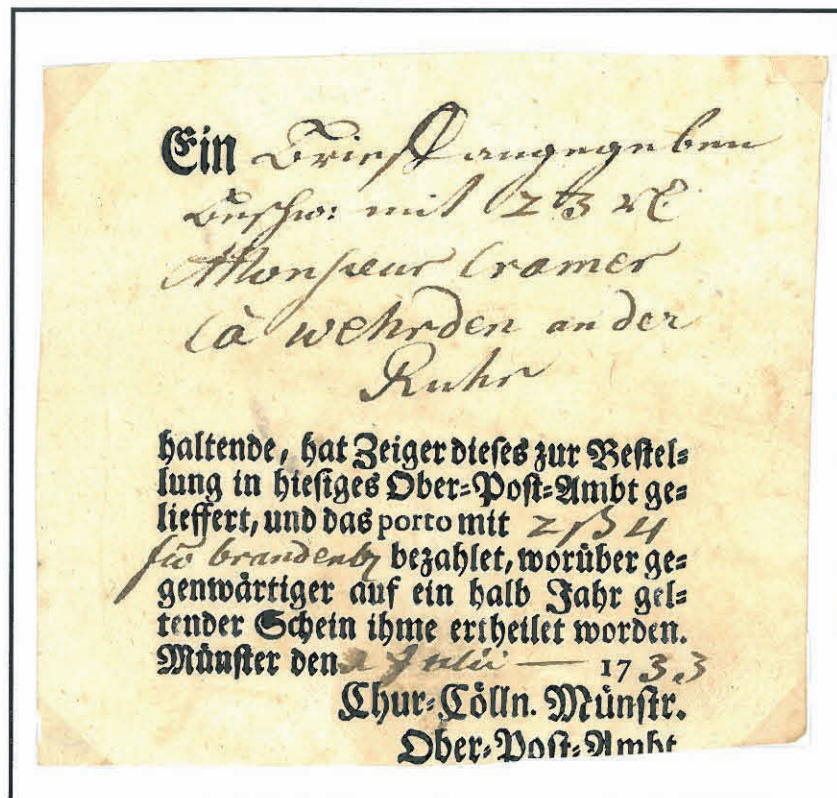 Ein Brieff angegeben
beschw: mit 23 rℓ
Monsieur Cramer
à wehrden an der
Ruhr
haltende, hat Zeiger dieses zur Bestel=
lung in hiesiges Ober=Post=Ambt ge=
lieffert, und das porto mit 2 ß 4
brandenb bezahlet, worüber ge=
genwärtiger auf ein halb Jahr gel=
tender Schein ihme ertheilet worden.
Münster den 2 Julii — 1733
Chur=Cölln. Münstr.
Ober=Post=Ambt